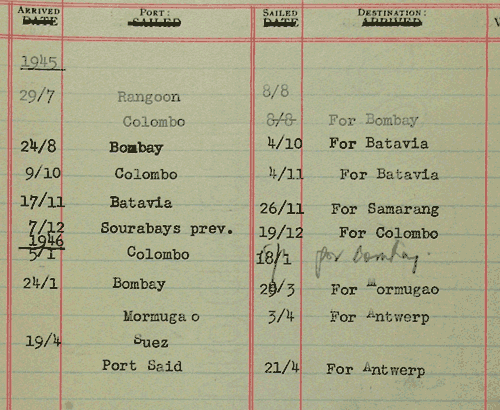 ARRIVED DATE PORT: SAILED SAILED DATE DESTINATION: ARRIVED
1945
29/7 Rangoon 8/8
Colombo 8/8 For Bombay
24/8 Bombay 4/10 For Batavia
9/10 Colombo 4/11 For Batavia
17/11 Batavia 26/11 For Samarang
7/12 Sourabays prev. 19/12 For Colombo
1946
5/1 Colombo 18/1 for Bombay.
24/1 Bombay 29/3 For Mormugao
Mormugao 3/4 For Antwerp
19/4 Suez
Port Said 21/4 For Antwerp